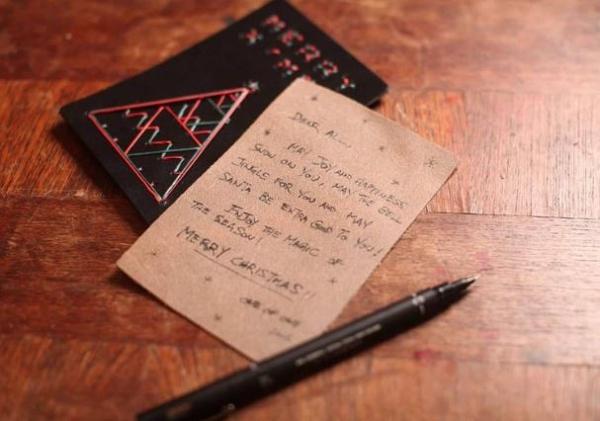 MERRY
X'M
DEAR AL...
MAY JOY AND HAPPINESS
SNOW ON YOU, MAY THE BELL
JINGLE FOR YOU AND MAY
SANTA BE EXTRA GOOD TO YOU!
ENJOY THE MAGIC OF
THE SEASON!
MERRY CHRISTMAS!!